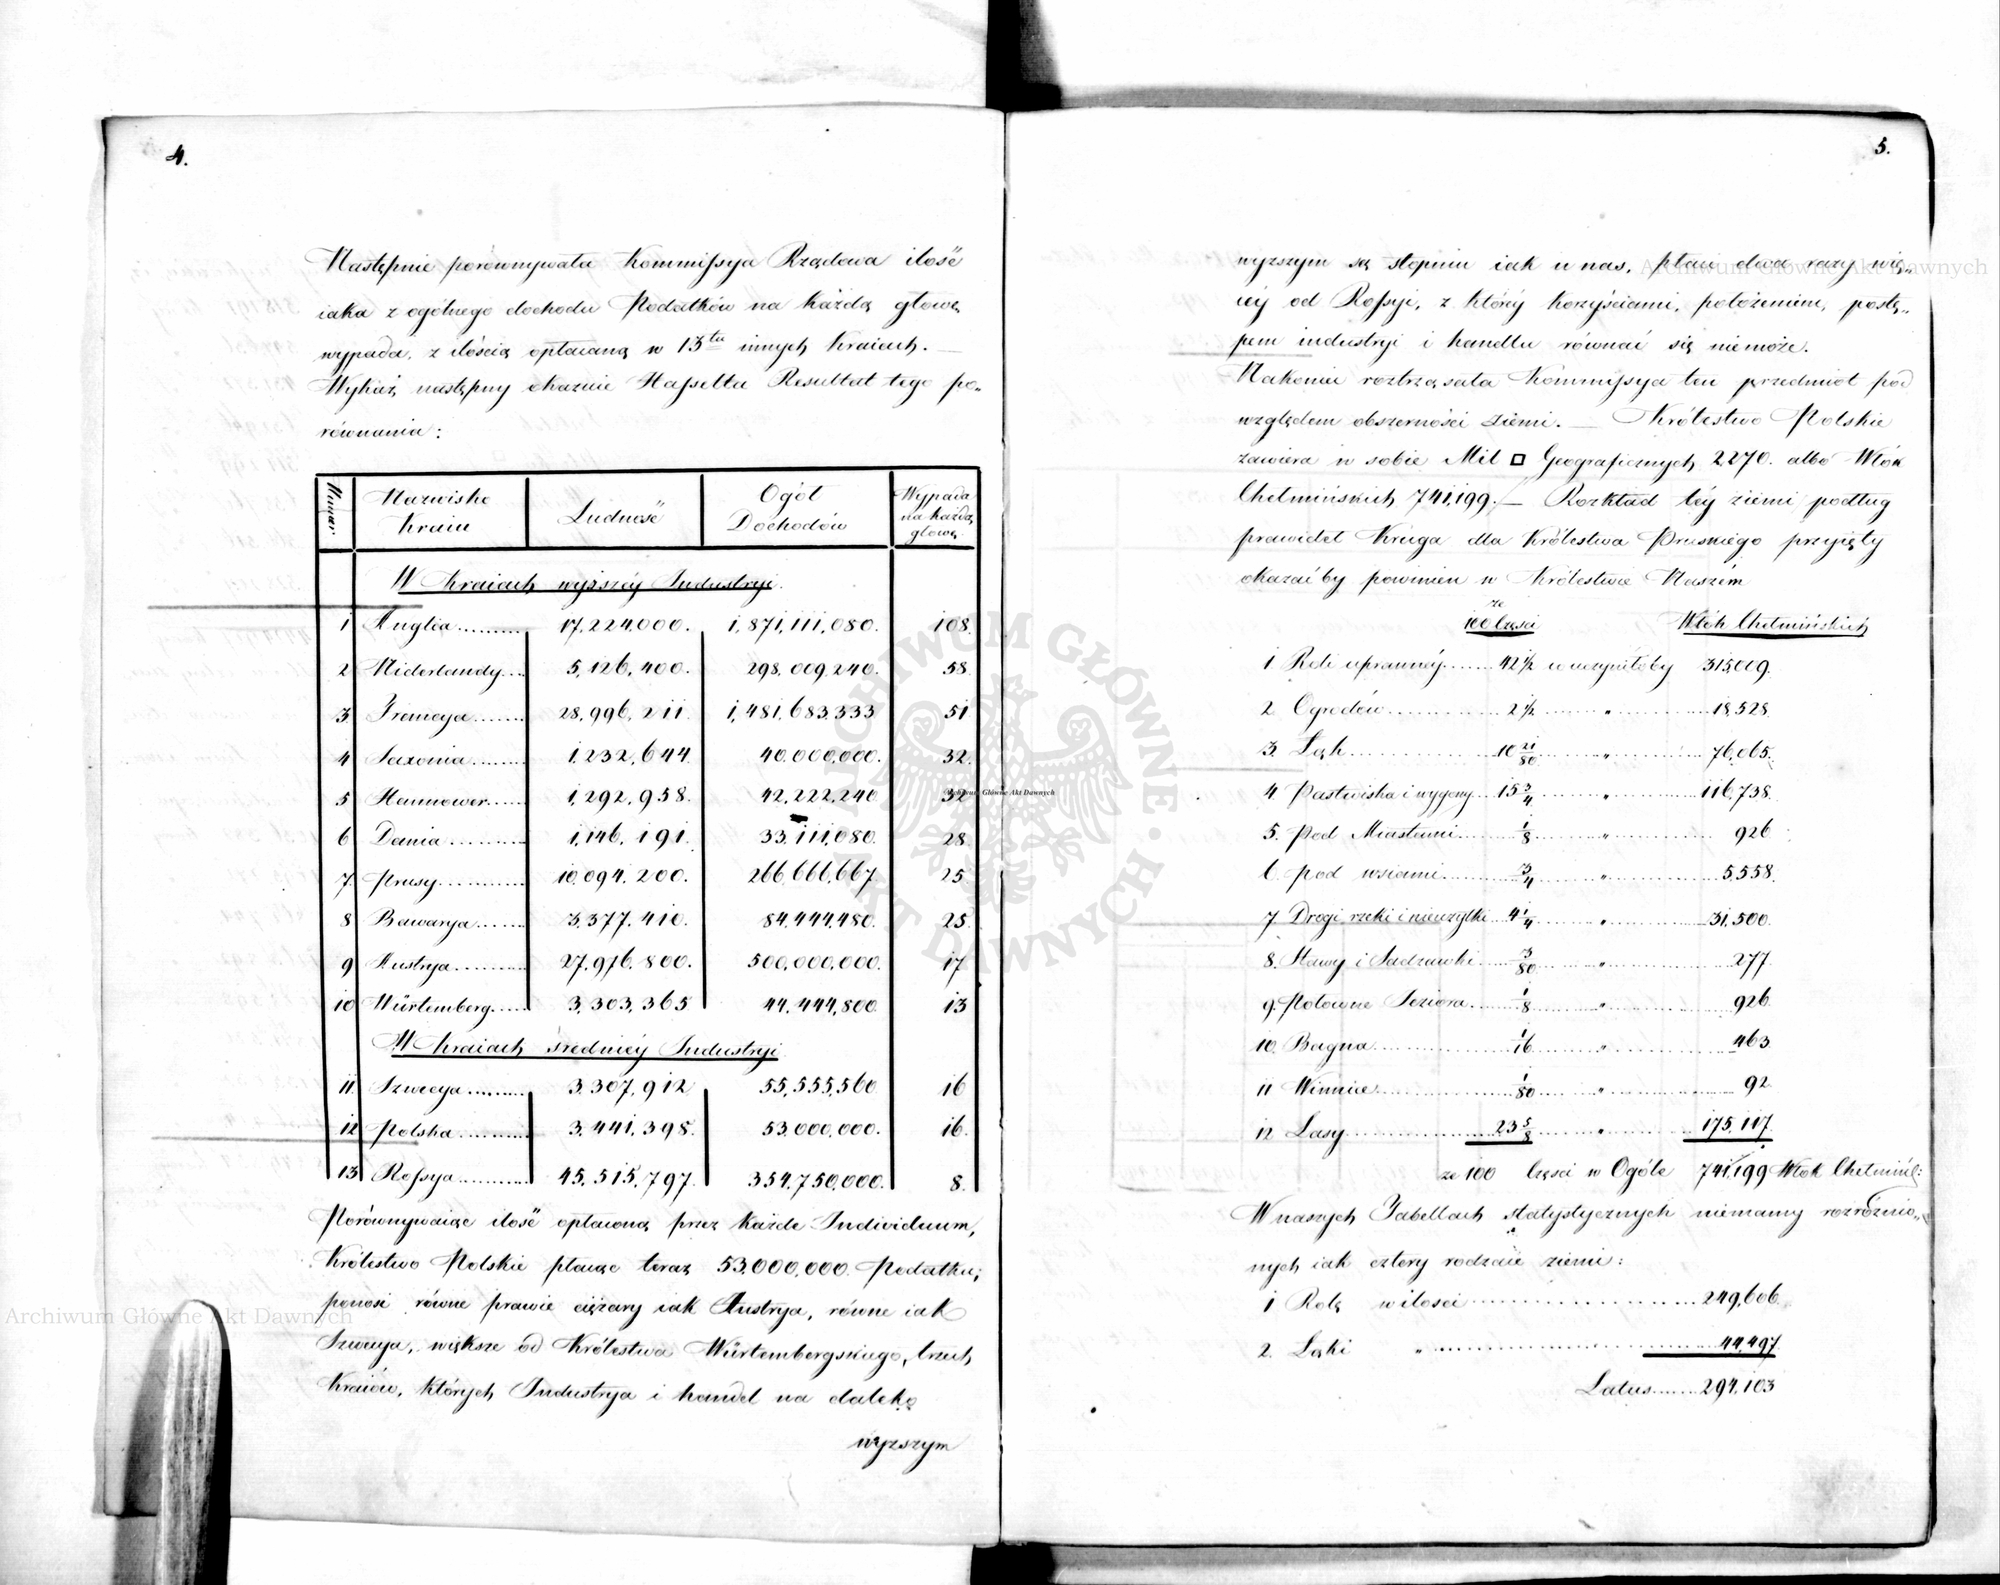 4.
Następnie porównywała Kommissya Rządowa ilość
iaka z ogólnego dochodu Podatków na każdą głowę
wypada, z ilością opłacaną w 13tu innych Kraiach. —
Wykaz następny okazuie Hasselta Resultat tego po-
równania:
Numer. Nazwisko Kraiu Ludność Ogół Dochodów Wypada na każdą głowę
W Kraiach wyższéy Industryi.
1 Anglia 17,224,000. 1,871,111,080. 108.
2 Niderlandy 5,126,400. 298,009,240. 58.
3 Francya 28,996,211. 1,481,683,333 51
4 Saxonia 1,232,644. 40,000,000. 32.
5 Hannower 1,292,958. 42,222,240 32
6 Dania 1,146,191. 33,111,080. 28.
7. Prusy 10,094,200. 266,666,667 25.
8 Bawarya 3,377,410. 84,444,480. 25.
9 Austrya 27,976,800. 500,000,000. 17.
10 Würtemberg 3,303,365 44,444,800 13
W Kraiach średniéy Industryi
11. Szwecya 3,307,912 55,555,560 16
12 Polska 3,441,398. 53,000,000. 16.
13. Rossya 45,515,797. 354,750,000. 8.
Porównywaiąc ilość opłaconą przez każde Individuum,
Królestwo Polskie płacąc teraz 53,000,000. Podatku;
ponosi równe prawie ciężary iak Austrya, równe iak
Szwecya, większe od Królestwa Würtembergskiego, trzech
Kraiów, których Industrya i handel na daleko
wyzszym
5.
wyzszym są stopniu iak u nas, płaci dwa razy wię-
céy od Rossyi, z któréy korzyściami, położeniem, postę-
pem industryi i handlu równać się niemoże.
Nakoniec roztrząsała Kommissya ten przedmiot pod
względem obszerności ziemi. — Królestwo Polskie
zawiera w sobie Mil □ Geograficznych 2270. albo Włók
Chełmińskich 741,199. — Rozkład téy ziemi podług
prawideł Kruga dla Królestwa Pruskiego przyięty
okazaćby powinien w Królestwie Naszém
ze 100 Części Włók Chełmińskich
1 Roli upranuéy 42 1/2 co uczyniłoby 315,009.
2 Ogrodów 2 1/2 " 18,528.
3. Łąk 10 21/80 " 76,065.
4. Pastwiska i wygony 15 3/4 " 116,738.
5. Pod Miastami 1/8 " 926
6. pod wsiami 3/4 " 5,558.
7 Drogi rzeki i nieużytki 4 1/4 " 31,500.
8. Stawy i Sadzawki 3/80 " 277.
9. Połowne Jeziora 1/8 " 926.
10. Bagna 1/16 " 463
11 Winnice 1/80 " 92.
12 Lasy 23 5/8 " 175,117.
ze 100 Części w Ogóle 741,199 Włók Chełmińs:
W naszych Tabellach statystycznych niemamy rozróżnio-
nych iak cztery rodzaie ziemi:
1 Rolę w ilości 249,606.
2. Łąki " 44,497.
Latus 294,103
Archiwum Główne Akt Dawnych
Archiwum Główne Akt Dawnych
Archiwum Główne Akt Dawnych
ARCHIWUM GŁÓWNE AKT DAWNYCH